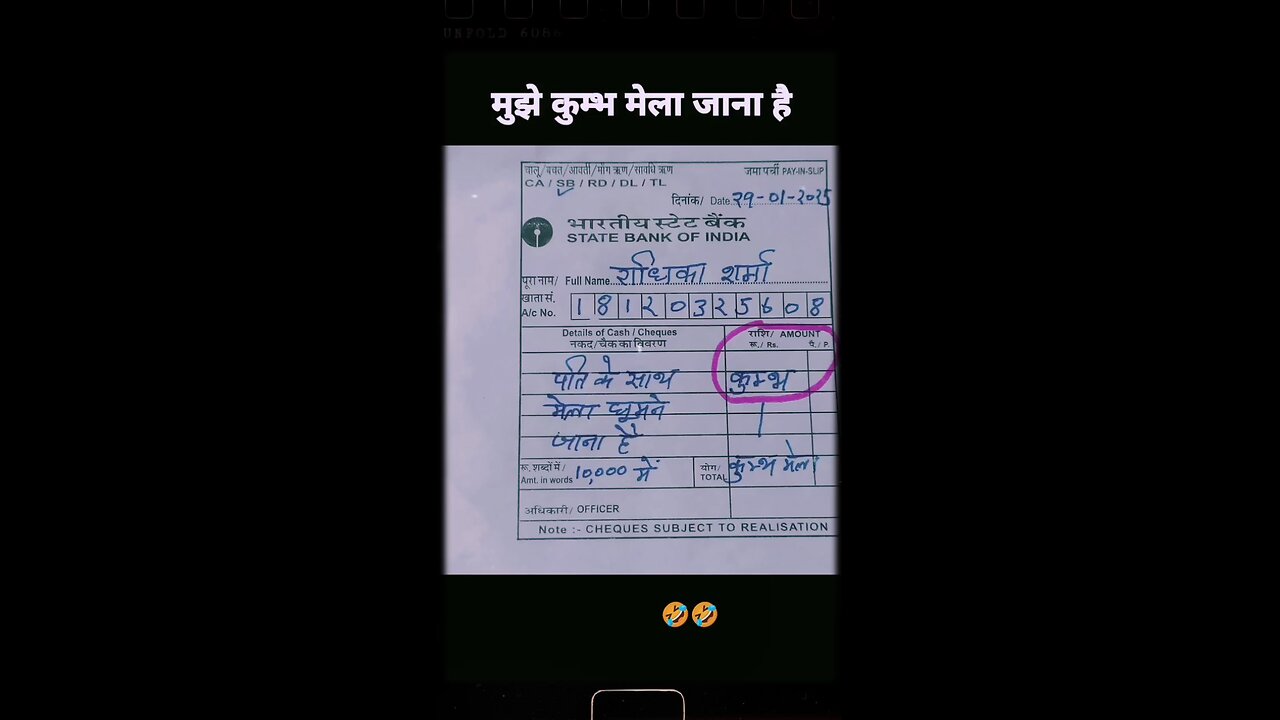 UNFOLD 6086
मुझे कुम्भ मेला जाना है
चालू/बचत/आवर्ती/माँग ऋण/सावधि ऋण
CA / SB / RD / DL / TL
जमा पर्ची PAY-IN-SLIP
दिनांक/ Date २९-०1-२०२5
भारतीय स्टेट बैंक
STATE BANK OF INDIA
पूरा नाम/ Full Name राधिका शर्मा
खाता सं.
A/c No. 18120325608
Details of Cash / Cheques
नकद/चैक का विवरण
राशि/ AMOUNT
रू./ Rs. पै./ P.
पति के साथ कुम्भ
मेला घूमने
जाना है
रू. शब्दों में/
Amt. in words 10,000 में
योग/
TOTAL कुम्भ मेला
अधिकारी/ OFFICER
Note :- CHEQUES SUBJECT TO REALISATION
🤣🤣